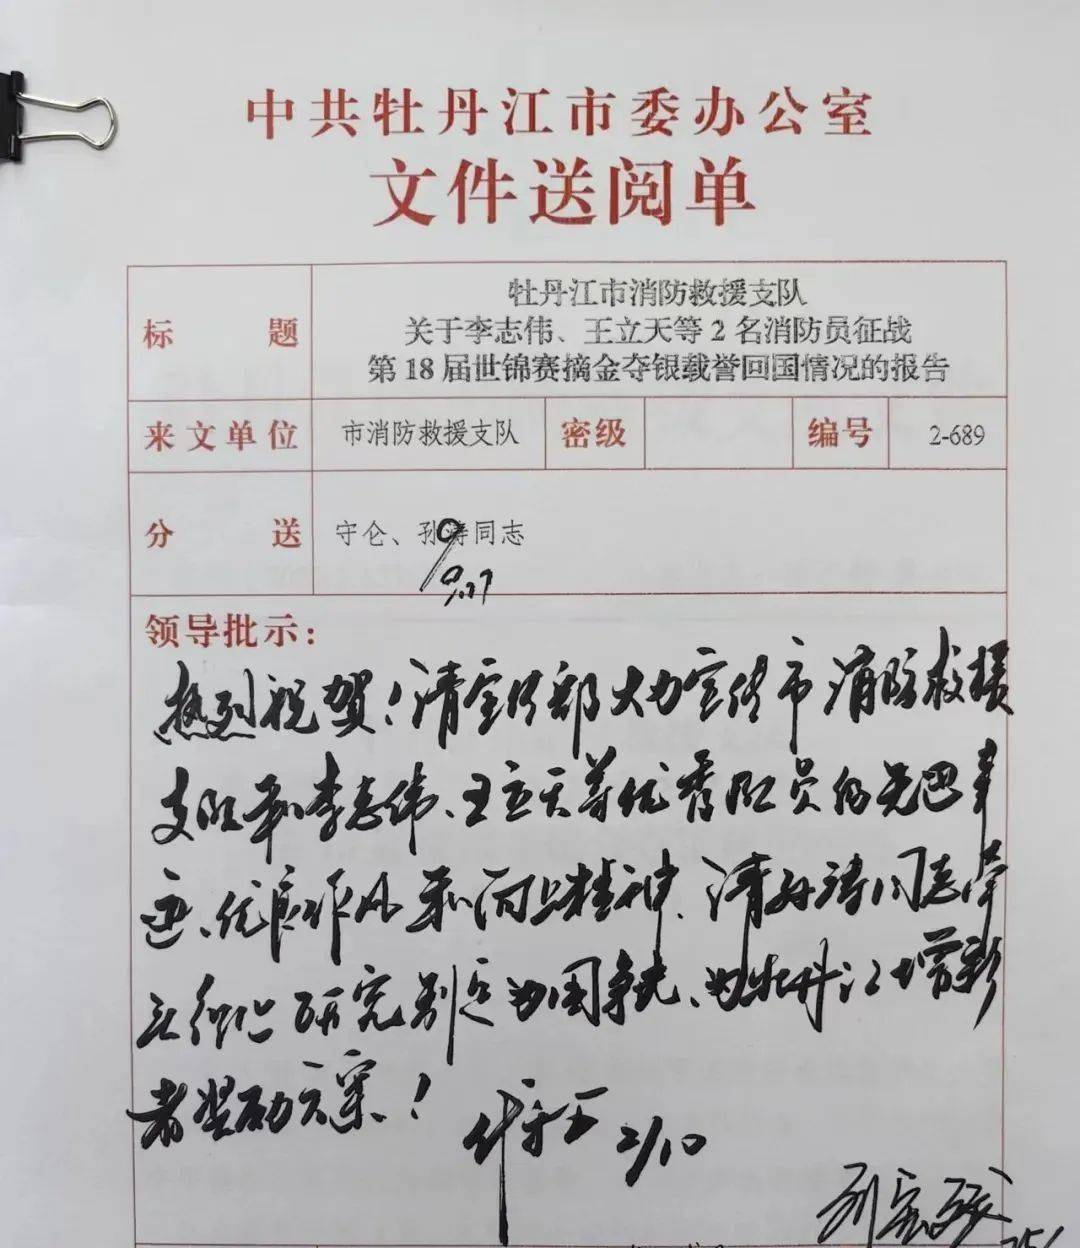 中共牡丹江市委办公室
文件送阅单
标 题
牡丹江市消防救援支队
关于李志伟、王立天等2名消防员征战
第18届世锦赛摘金夺银载誉回国情况的报告
来文单位 市消防救援支队 密级 编号 2-689
分 送 守仑、孙涛同志
9.27
领导批示：
热烈祝贺！请宣传部大力宣传市消防救援
支队和李志伟、王立天等优秀队员的先进事
迹、优良作风和向上精神、请孙涛同志牵
头 研究制定为国争光、为牡丹江增彩
者奖励方案！
代守仑 2/10